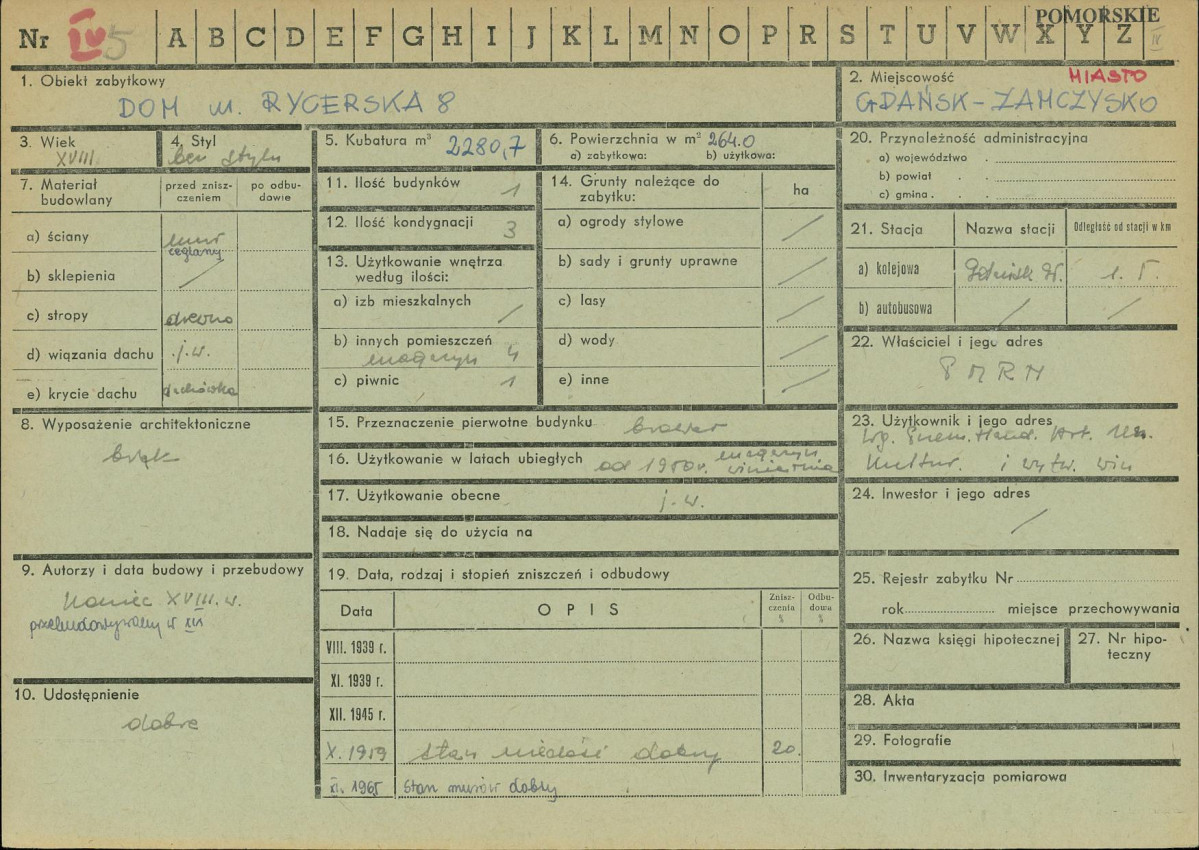 POMORSKIE
Nr IV 5 A B C D E F G H I J K L M N O P R S T U V W X Y Z IV
1. Obiekt zabytkowy
DOM ul. RYCERSKA 8
2. Miejscowość MIASTO
GDAŃSK-ZAMCZYSKO
3. Wiek
XVIII
4. Styl
bez stylu
5. Kubatura m³ 2280,7
6. Powierzchnia w m² 264.0
a) zabytkowa: b) użytkowa:
7. Materiał budowlany
przed znisz-
czeniem
po odbu-
dowie
a) ściany mur
ceglany
b) sklepienia /
c) stropy drewno
d) wiązania dachu j.w.
e) krycie dachu dachówka
8. Wyposażenie architektoniczne
brak
9. Autorzy i data budowy i przebudowy
Koniec XVIII. w.
przebudowywany w XIX
10. Udostępnienie
dobre
11. Ilość budynków 1
12. Ilość kondygnacji 3
13. Użytkowanie wnętrza
według ilości:
a) izb mieszkalnych /
b) innych pomieszczeń
magazyn 4
c) piwnic 1
14. Grunty należące do
zabytku:
ha
a) ogrody stylowe /
b) sady i grunty uprawne /
c) lasy /
d) wody /
e) inne /
15. Przeznaczenie pierwotne budynku browar
16. Użytkowanie w latach ubiegłych od 1950r. magazyn
winiarnia
17. Użytkowanie obecne j.w.
18. Nadaje się do użycia na
19. Data, rodzaj i stopień zniszczeń i odbudowy
Data OPIS Znisz-
czenia
% Odbu-
dowa
%
VIII. 1939 r.
XI. 1939 r.
XII. 1945 r.
X. 1959 stan mierność dobry 20.
XI. 1965 stan murów dobry
20. Przynależność administracyjna
a) województwo
b) powiat
c) gmina
21. Stacja Nazwa stacji Odległość od stacji w km
a) kolejowa Gdańsk Gł. 1.5.
b) autobusowa / /
22. Właściciel i jego adres
PMRN
23. Użytkownik i jego adres
Hand. Art.
Kultur. i wytw. win
24. Inwestor i jego adres
/
25. Rejestr zabytku Nr
rok miejsce przechowywania
26. Nazwa księgi hipotecznej
27. Nr hipo-
teczny
28. Akta
29. Fotografie
30. Inwentaryzacja pomiarowa